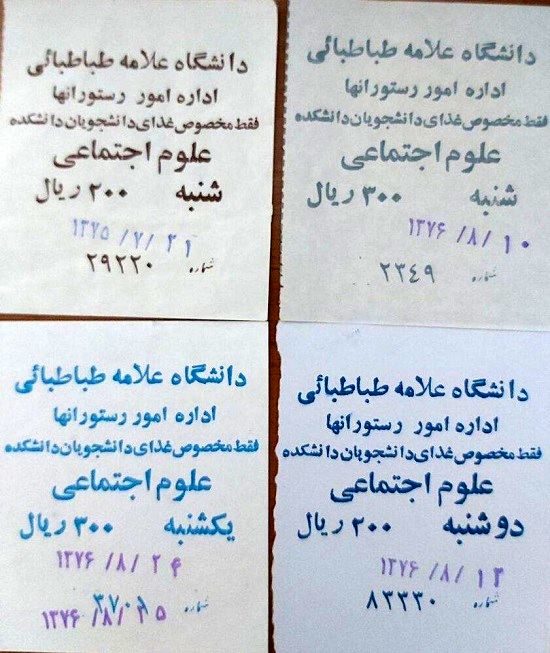 دانشگاه علامه طباطبائی
اداره امور رستورانها
فقط مخصوص غذای دانشجویان دانشکده
علوم اجتماعی
شنبه ۳۰۰ ریال
۱۳۷۶ /۸/ ۱۰
شماره ۲۳٤۹
دانشگاه علامه طباطبائی
اداره امور رستورانها
فقط مخصوص غذای دانشجویان دانشکده
علوم اجتماعی
شنبه ۲۰۰ ریال
۱۳۷۵ /۷/ ۲۱
شماره ۲۹۲۲۰
دانشگاه علامه طباطبائی
اداره امور رستورانها
فقط مخصوص غذای دانشجویان دانشکده
علوم اجتماعی
دوشنبه ۲۰۰ ریال
۱۳۷۶ /۸/ ۱۲
شماره ۸۳۳۳۰
دانشگاه علامه طباطبائی
اداره امور رستورانها
فقط مخصوص غذای دانشجویان دانشکده
علوم اجتماعی
یکشنبه ۳۰۰ ریال
۱۳۷۶ /۸/ ۲۴
شماره
۱۳۷۶ /۸/ ۲۵